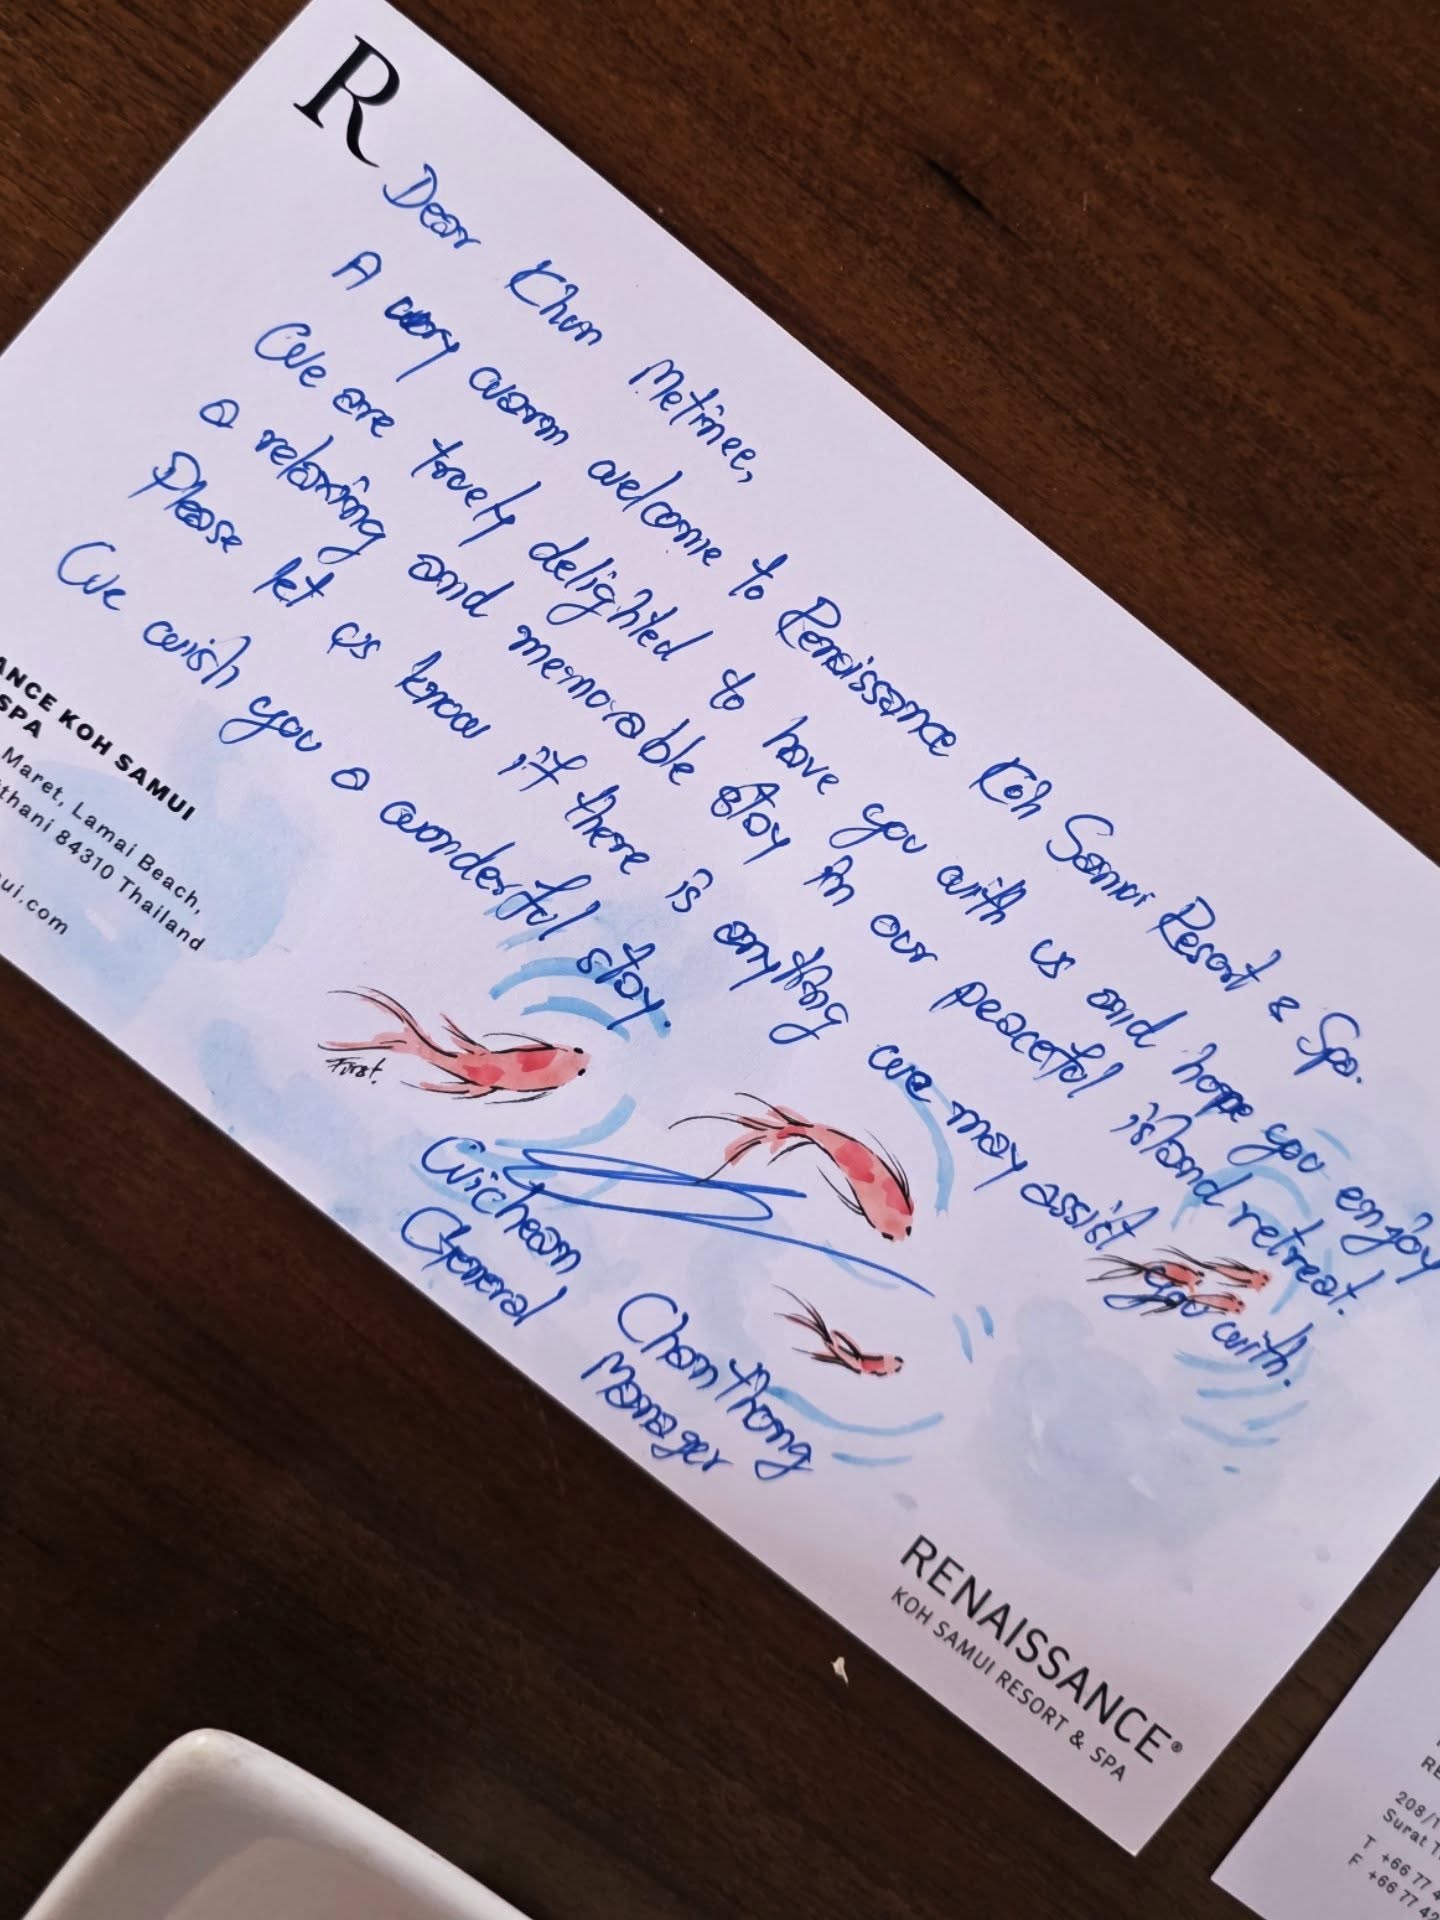 R
Dear Khun Metinee,
A very warm welcome to Renaissance Koh Samui Resort & Spa.
We are truely delighted to have you with us and hope you enjoy
a relaxing and memorable stay in our peaceful island retreat.
Please let us know if there is anything we may assist you with.
We wish you a wonderful stay.
First.
Wichean Chanthong
General Manager
ANCE KOH SAMUI
SPA
Maret, Lamai Beach,
thani 84310 Thailand
ui.com
RENAISSANCE®
KOH SAMUI RESORT & SPA
RE
208/1
Surat T
T +66 77 4
F +66 77 42